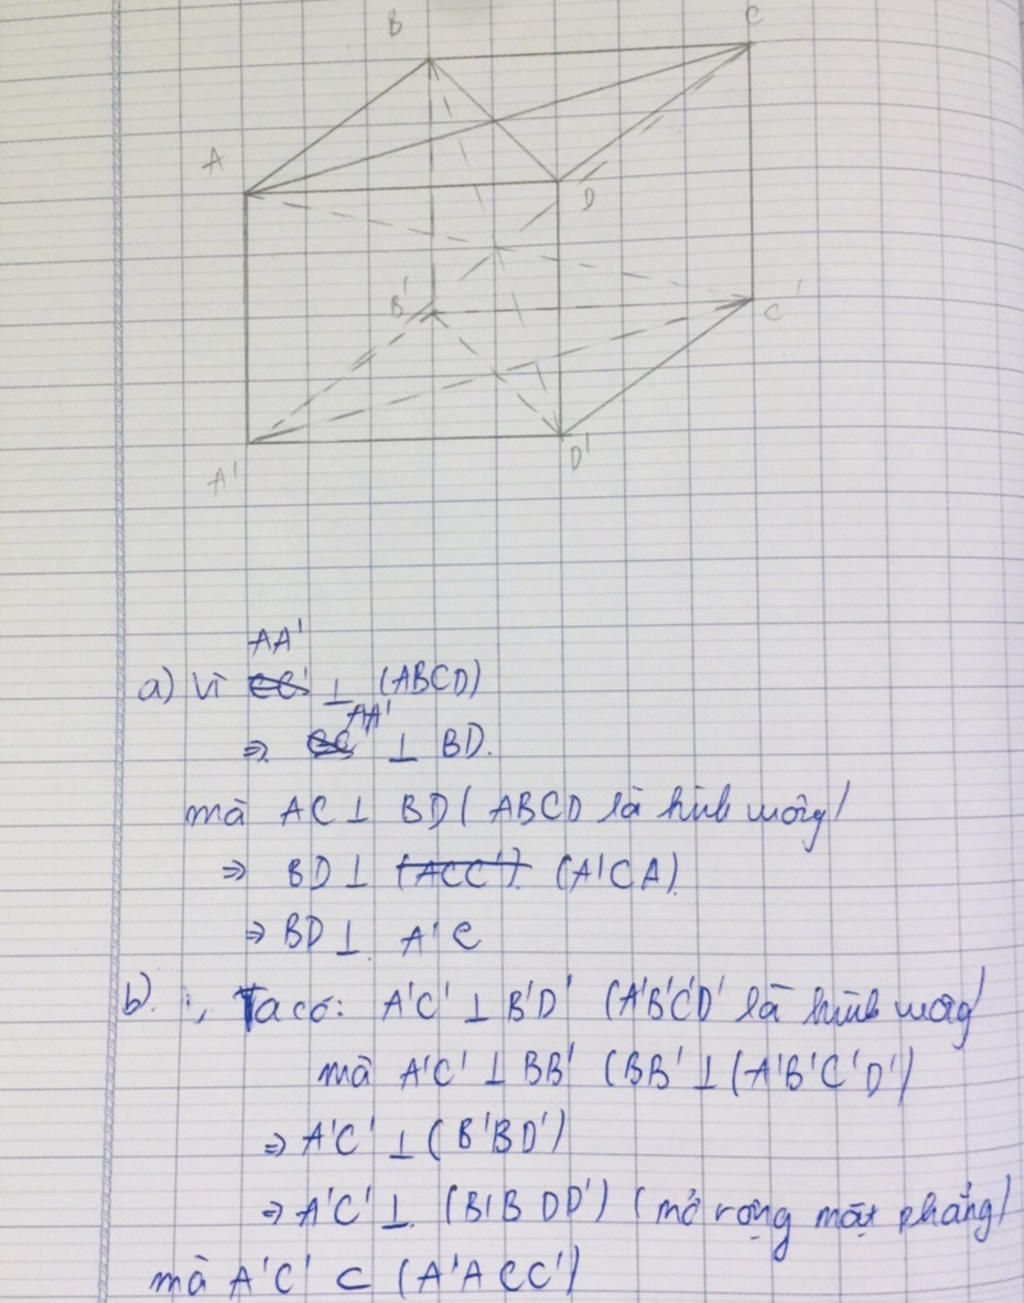 B
C
A
D
B'
C'
A'
D'
AA'
a) Vì CC' ⊥ (ABCD)
AA'
⇒ ⊥ BD.
mà AC ⊥ BD ( ABCD là hình vuông)
⇒ BD ⊥ (ACC'). (A'CA).
⇒ BD ⊥ A'C
b). Ta có: A'C' ⊥ B'D' (A'B'C'D' là hình vuông)
mà A'C' ⊥ BB' (BB' ⊥ (A'B'C'D')
⇒ A'C' ⊥ (B'BD')
⇒ A'C' ⊥ (B'BDD') (mở rộng mặt phẳng)
mà A'C' ⊂ (A'ACC')